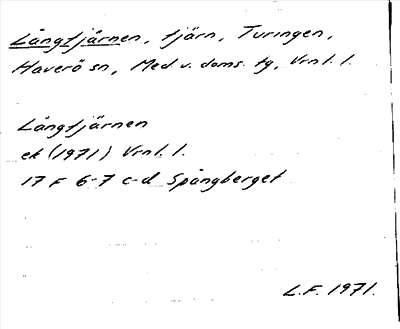 Långtjärnen, tjärn, Turingen,
Haverö sn, Med v. doms. tg, Vrnl. l.
Långtjärnen
ek (1971) Vrnl. l.
17 F 6-7 c-d Spångberget
L.F. 1971.